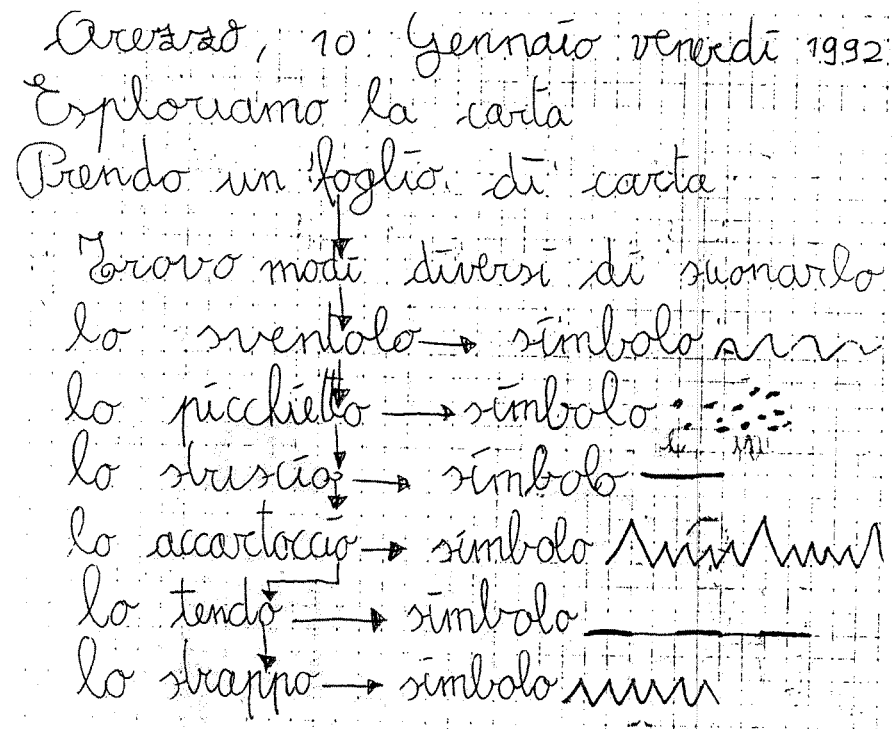 Arezzo, 10 Gennaio venerdì 1992
Esploriamo la carta
Prendo un foglio di carta
Trovo modi diversi di suonarlo
lo sventolo → simbolo
lo picchietto → simbolo
lo struscio → simbolo
lo accartoccio → simbolo
lo tendo → simbolo
lo strappo → simbolo